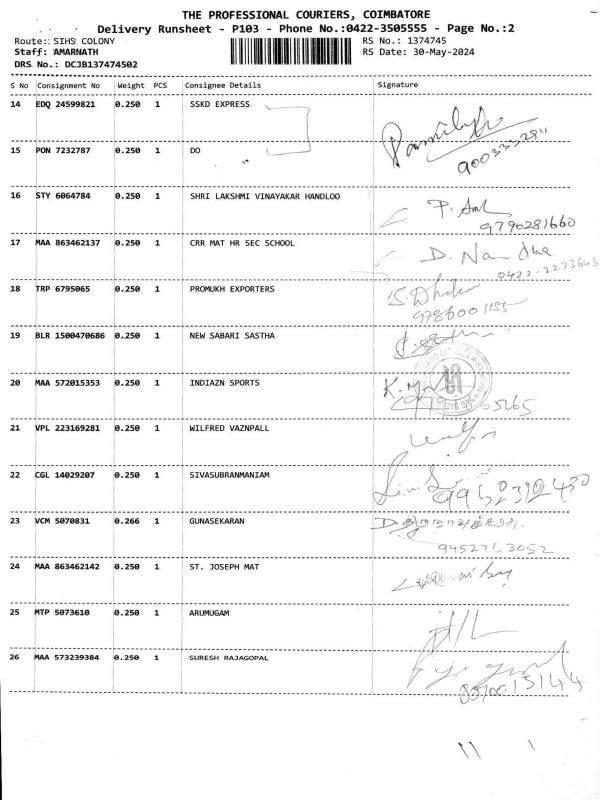 THE PROFESSIONAL COURIERS, COIMBATORE
Delivery Runsheet - P103 - Phone No.:0422-3505555 - Page No.:2
Route:: SIHS COLONY RS No.: 1374745
Staff: AMARNATH RS Date: 30-May-2024
DRS No.: DCJB137474502
S No Consignment No Weight PCS Consignee Details Signature
14 EDQ 24599821 0.250 1 SSKD EXPRESS
15 PON 7232787 0.250 1 DO
16 STY 6064784 0.250 1 SHRI LAKSHMI VINAYAKAR HANDLOO
9790281660
17 MAA 863462137 0.250 1 CRR MAT HR SEC SCHOOL D. Nandha
0422-2273643
18 TRP 6795065 0.250 1 PROMUKH EXPORTERS
9786001155
19 BLR 1500470686 0.250 1 NEW SABARI SASTHA
20 MAA 572015353 0.250 1 INDIAZN SPORTS
21 VPL 223169281 0.250 1 WILFRED VAZNPALL
22 CGL 14029207 0.250 1 SIVASUBRANMANIAM
9952312430
23 VCM 5070831 0.266 1 GUNASEKARAN
9452713052
24 MAA 863462142 0.250 1 ST. JOSEPH MAT
25 MTP 5073610 0.250 1 ARUMUGAM
26 MAA 573239384 0.250 1 SURESH RAJAGOPAL